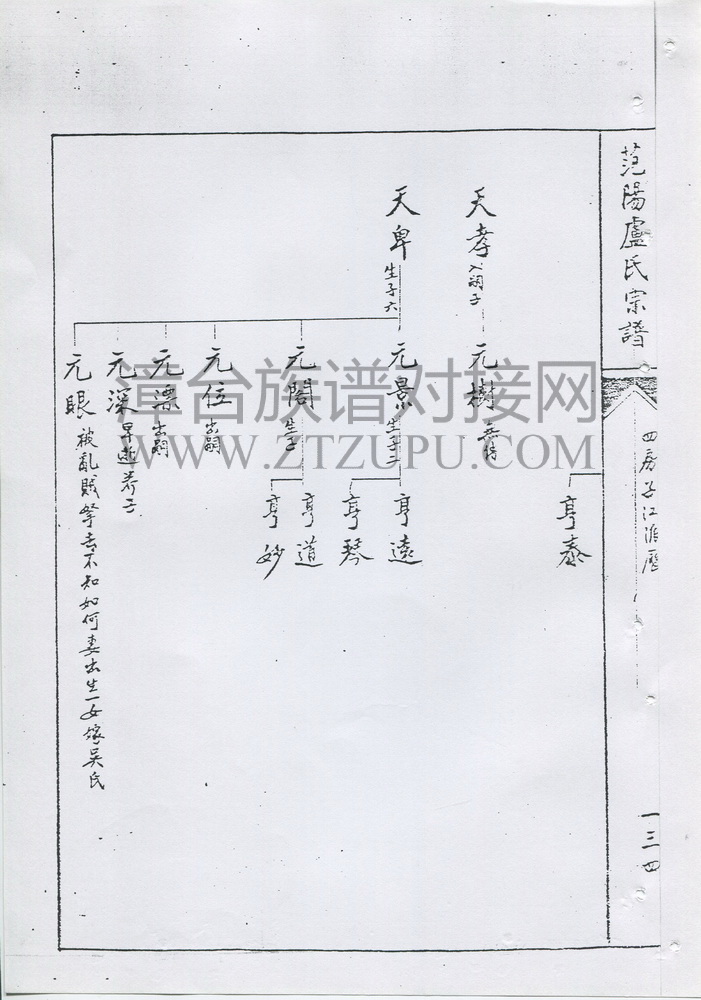 范陽盧氏宗譜
四房子江淮歷
一三四
亨泰
天孝 入嗣子
元樹 無傳
天卑 生子六
元景 生子二
亨遠
亨琴
元閣 生子
亨道
亨妙
元位 出嗣
元漂 出嗣
元深 早逝
元眼 被亂賊拏去不知如何妻出生一女嫁吳氏
漳台族谱对接网
WWW.ZTZUPU.COM